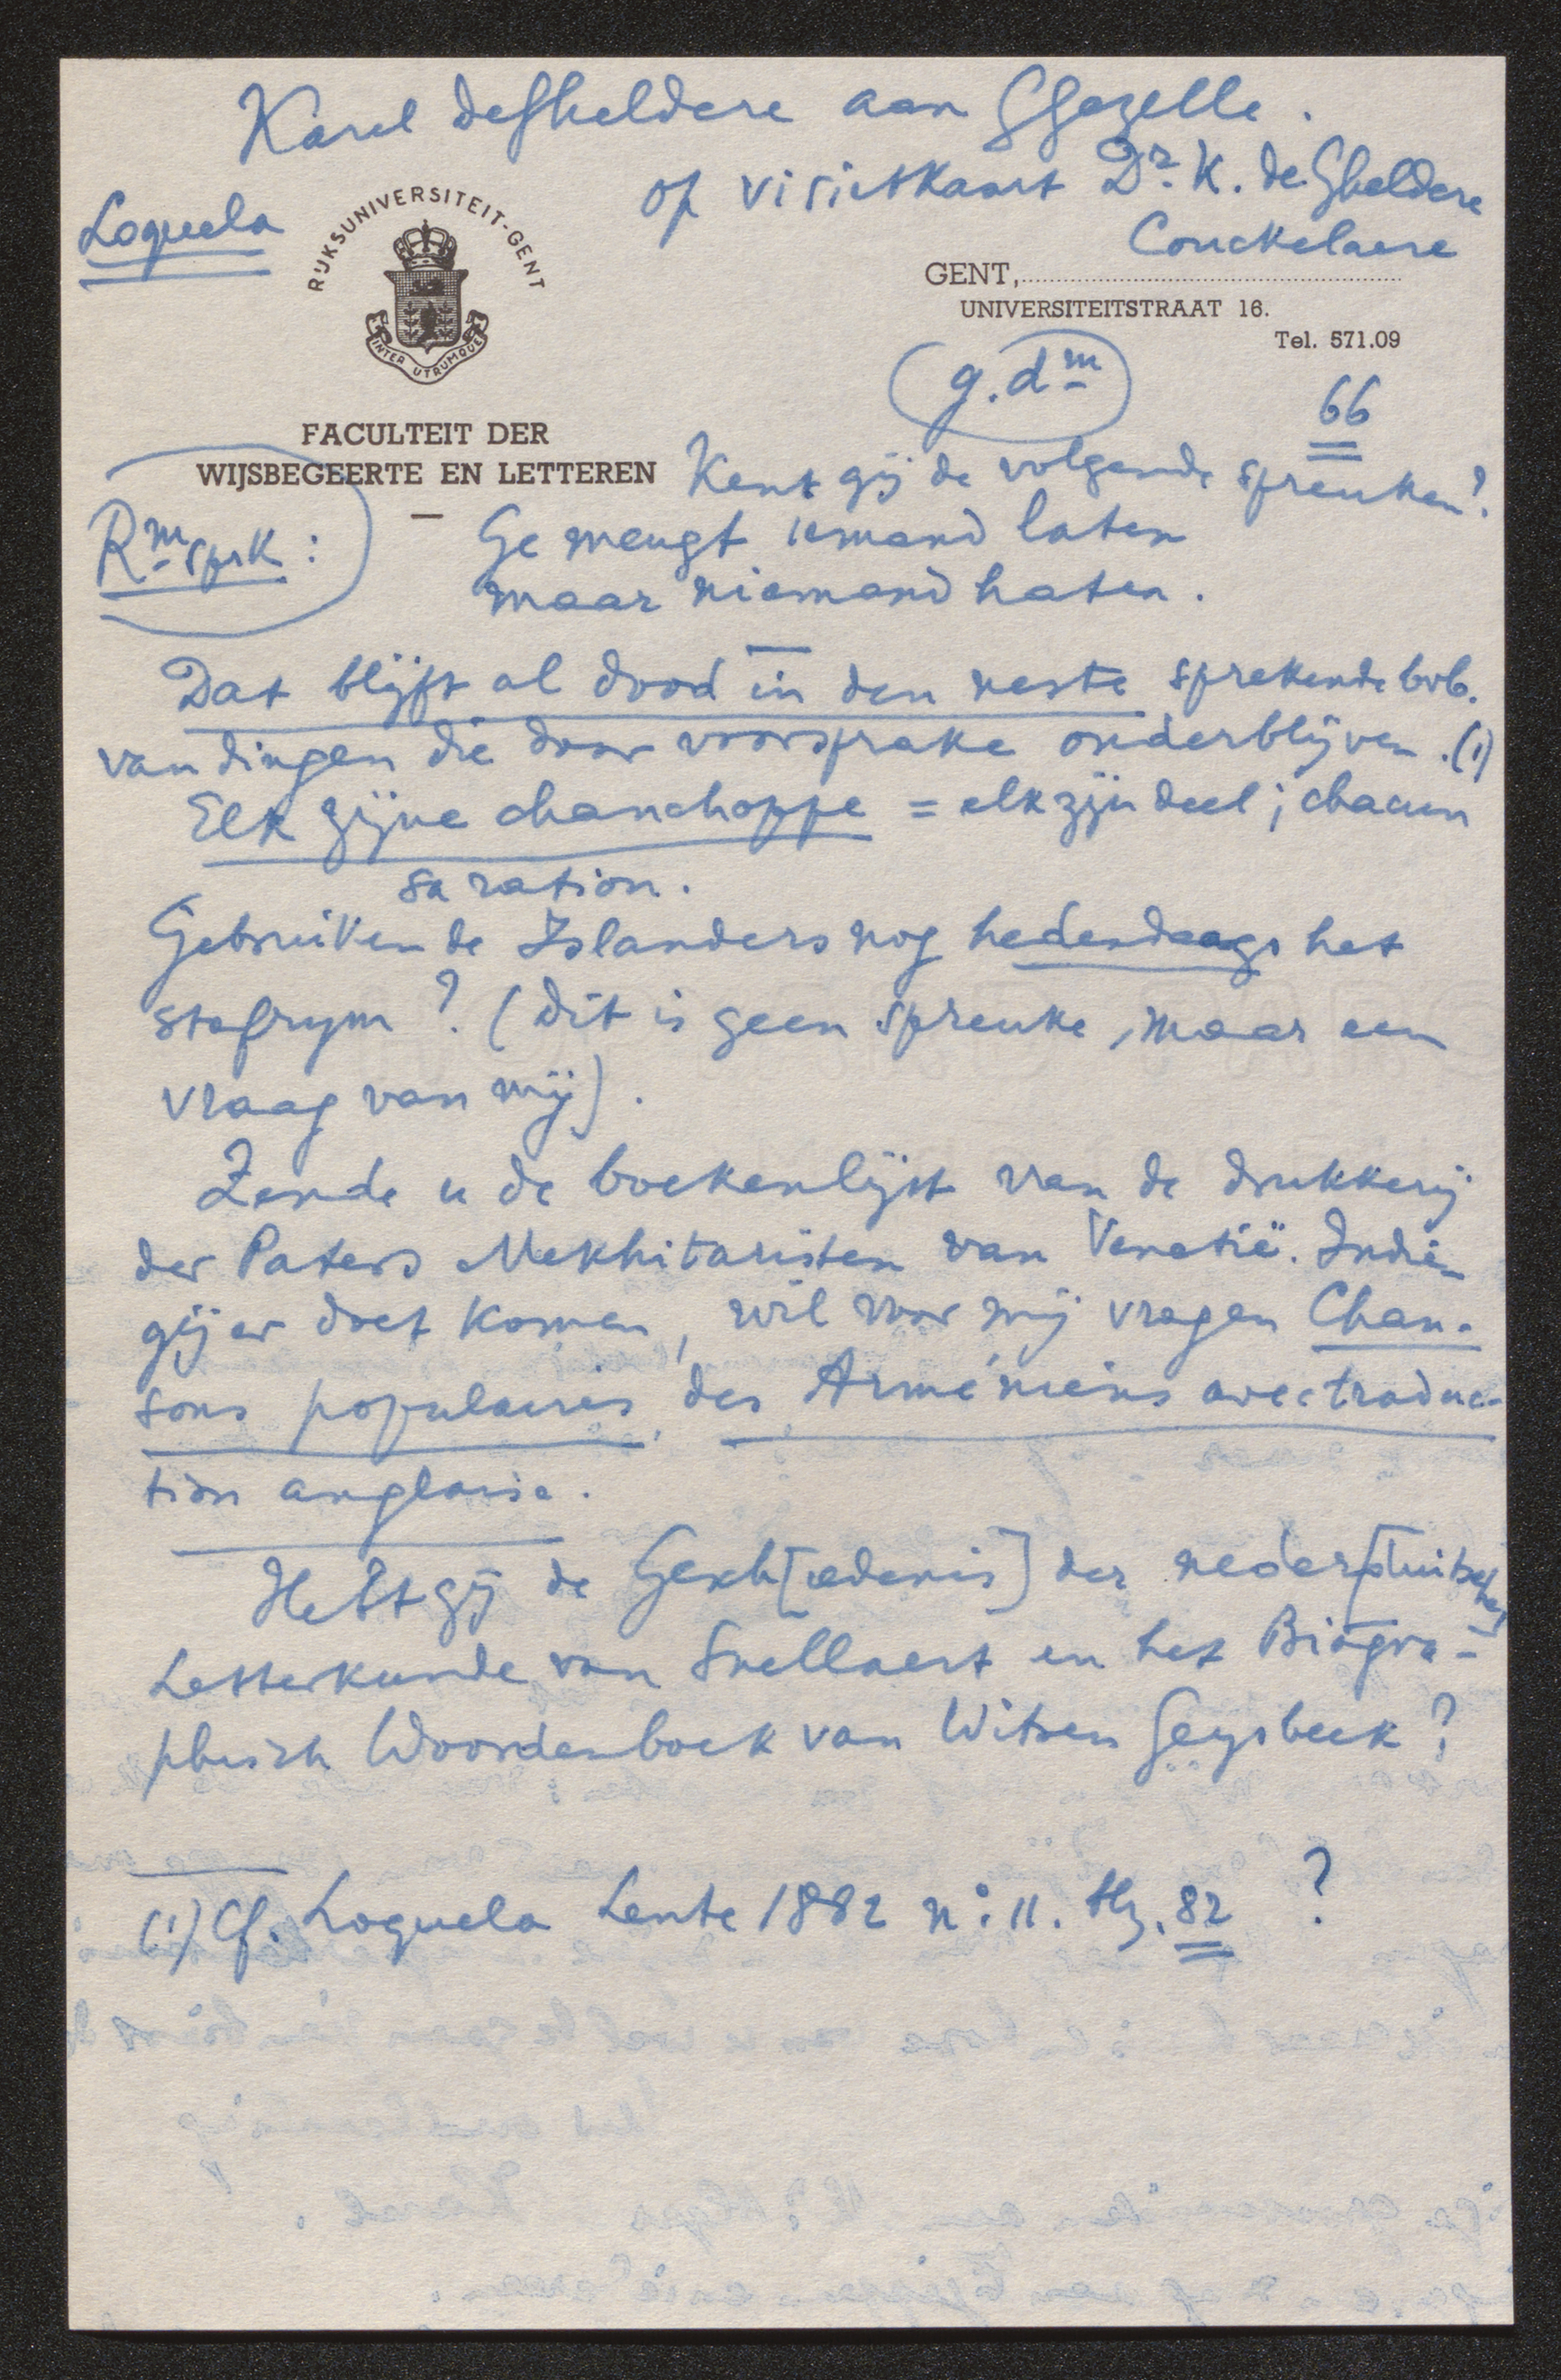 Karel deGheldere aan GGezelle.
op visietkaart Dr. K. de Gheldere
Couckelaere
Loquela
RIJKSUNIVERSITEIT-GENT
INTER UTRUMQUE
GENT,
UNIVERSITEITSTRAAT 16.
Tel. 571.09
g.dm
66
FACULTEIT DER
WIJSBEGEERTE EN LETTEREN
Kent gij de volgende spreuken?
Rm sprk:
Ge meugt iemand laten
maar niemand haten.
Dat blijft al dood in den neste sprekende
van dingen die door voorsprake onderblijven. (1)
Elk zijne chanchoppe = elk zijn deel; chacun
sa ration.
Gebruiken de Islanders nog hedendaags het
stafrym? (dit is geen spreuke, maar een
vraag van mij).
Zende u de boekenlijst van de drukkerij
der Paters Mekhitaristen van Venetië. Indien
gij er doet komen, wil voor mij vragen Chan-
sons populaires des Arméniens avec traduc-
tion anglaise.
Hebt gij de Gesch[iedenis] der neder[duitsche]
Letterkunde van Snellaert en het Biogra-
phisch Woordenboek van Witsen Geysbeek?
(1) Cf. Loquela Lente 1882 n: 11. blz. 82 ?